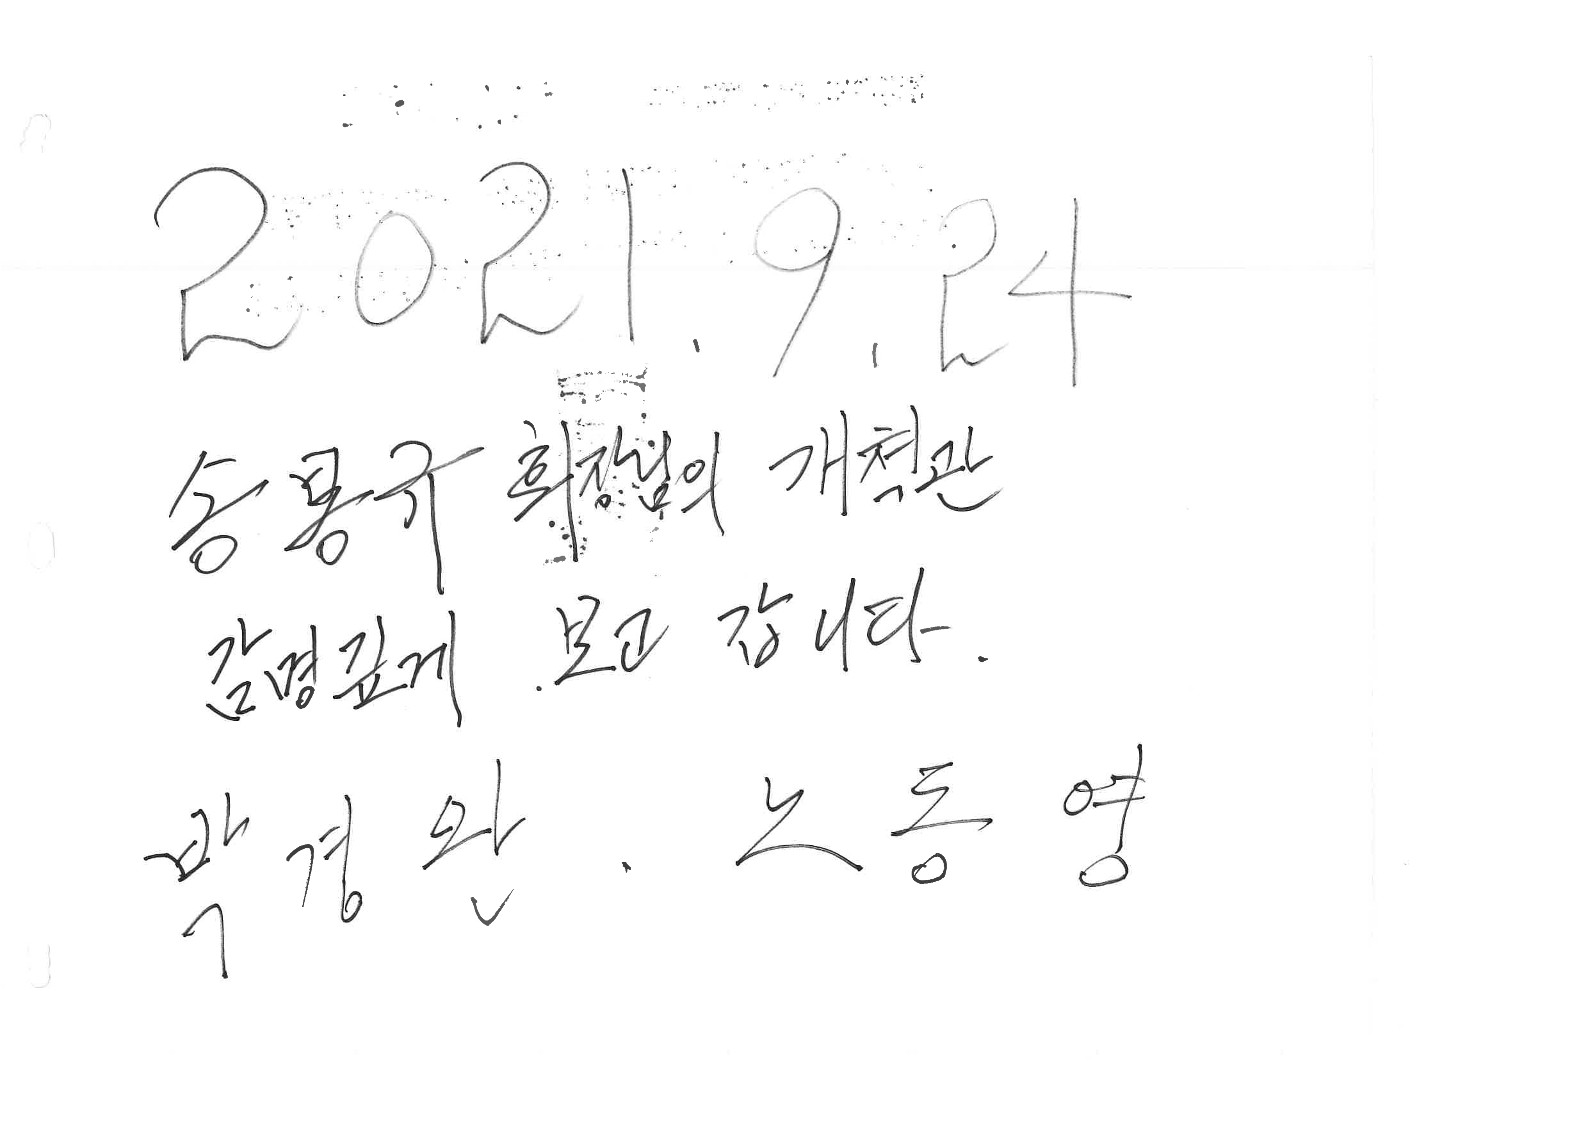 2021. 9. 24
송용규 회장님의 개척관
감명깊게 보고 갑니다.
박경완. 노동영